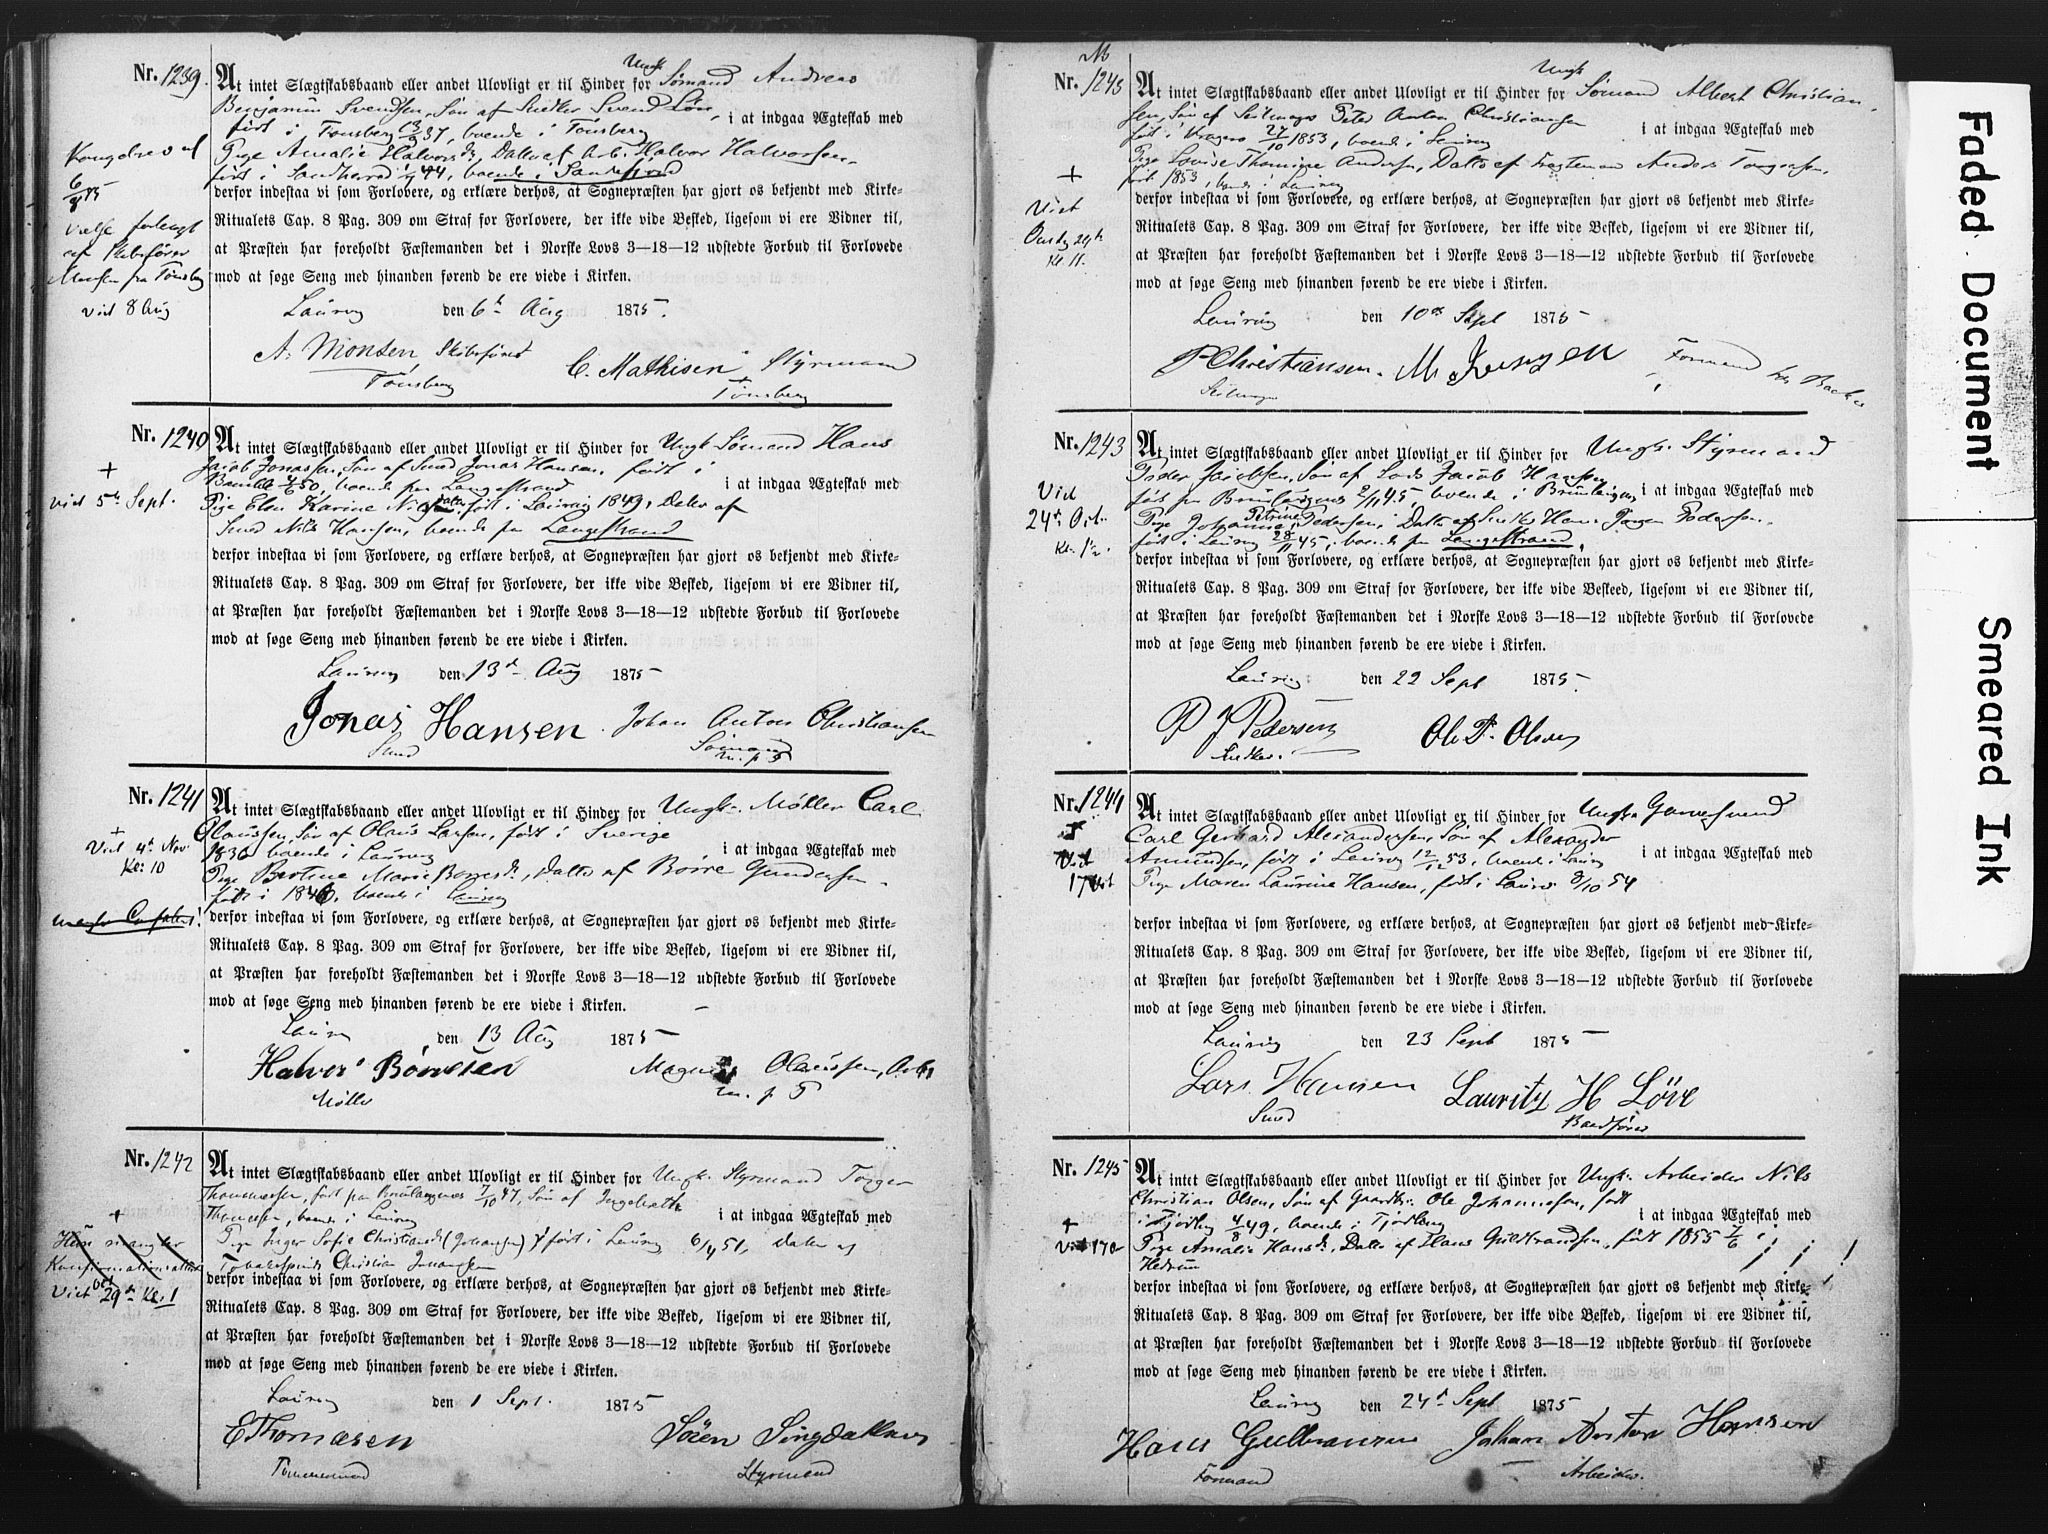 Nr. 1239.
At intet Slægtskabsbaand eller andet Ulovligt er til Hinder for Ungk Sømand Andreas
Benjamin Svendsen, Søn af Snedker Svend
født i Tønsberg 37, boende i Tønsberg i at indgaa Ægteskab med
Pige Amalie Halvorsd, Datter af Arb. Halvor Halvorsen
født i Sandherred 44, boende i Sandefjord
derfor indestaa vi som Forlovere, og erklære derhos, at Sognepræsten har gjort os bekjendt med Kirke-
Ritualets Cap. 8 Pag. 309 om Straf for Forlovere, der ikke vide Besked, ligesom vi ere Vidner til,
at Præsten har foreholdt Fæstemanden det i Norske Lovs 3—18—12 udstedte Forbud til Forlovede
mod at søge Seng med hinanden førend de ere viede i Kirken.
Laurvig den 6te Aug 1875.
A. Monsen Skibsfører C. Mathisen Styrmand
Tønsberg Tønsberg
Kongebrev af
6/8 75
forlangt
af Skibsfører
Monsen fra Tønsberg
vied 8 Aug
Nr. 1240
At intet Slægtskabsbaand eller andet Ulovligt er til Hinder for Ungk. Sømand Hans
Jacob Jonassen, Søn af Smed Jonas Hansen, født i
50, boende paa Langestrand i at indgaa Ægteskab med
Pige Elen Karine født i Laurvig 1849, Datter af
Smed Nils Hansen, boende paa Langestrand
derfor indestaa vi som Forlovere, og erklære derhos, at Sognepræsten har gjort os bekjendt med Kirke-
Ritualets Cap. 8 Pag. 309 om Straf for Forlovere, der ikke vide Besked, ligesom vi ere Vidner til,
at Præsten har foreholdt Fæstemanden det i Norske Lovs 3—18—12 udstedte Forbud til Forlovede
mod at søge Seng med hinanden førend de ere viede i Kirken.
Laurvig den 13de Aug 1875
Jonas Hansen Johan Anton Christiansen
Smed Sømand
m. p. P
+
vied 5te Sept.
Nr. 1241
At intet Slægtskabsbaand eller andet Ulovligt er til Hinder for Ungk. Møller Carl
Olaussen, Søn af Olaus Larsen, født i Sverige
1836 boende i Laurvig i at indgaa Ægteskab med
Pige Bertine Marie Børresd., Datter af Børre Gundersen
født i 1846, boende i Laurvig
derfor indestaa vi som Forlovere, og erklære derhos, at Sognepræsten har gjort os bekjendt med Kirke-
Ritualets Cap. 8 Pag. 309 om Straf for Forlovere, der ikke vide Besked, ligesom vi ere Vidner til,
at Præsten har foreholdt Fæstemanden det i Norske Lovs 3—18—12 udstedte Forbud til Forlovede
mod at søge Seng med hinanden førend de ere viede i Kirken.
Laurvig den 13 Aug 1875
Halvor Børresen Magnus Olaussen, Arb
Møller m. p. P
+
Vied 4de Nov
Kl: 10
Nr. 1242
At intet Slægtskabsbaand eller andet Ulovligt er til Hinder for Ungk. Styrmand Torger
Thomessen, født paa Brunlanges 7/10 47, Søn af Ingebreth
Thomesen, boende i Laurvig i at indgaa Ægteskab med
Pige Inger Sofie Christiansd (Johansen) født i Laurvig 6/4 51, Datter af
Christian Johansen
derfor indestaa vi som Forlovere, og erklære derhos, at Sognepræsten har gjort os bekjendt med Kirke-
Ritualets Cap. 8 Pag. 309 om Straf for Forlovere, der ikke vide Besked, ligesom vi ere Vidner til,
at Præsten har foreholdt Fæstemanden det i Norske Lovs 3—18—12 udstedte Forbud til Forlovede
mod at søge Seng med hinanden førend de ere viede i Kirken.
Laurvig den 1 Sept. 1875
E Thomesen Sören
Tømmermand Styrmand
+
Hun mangler
Konfirmationsattest
Vied 29de Kl. 1
Nr. 1243
At intet Slægtskabsbaand eller andet Ulovligt er til Hinder for Ungk Sömand Albert Christian-
sen, Søn af Seilmager Peter Anton Christiansen
født i Kragerø 27/10 1853, boende i Laurvig i at indgaa Ægteskab med
Pige Lovise Thomine Andersen, Datter af Fragtemand Anders
født 1853, boende i Laurvig
derfor indestaa vi som Forlovere, og erklære derhos, at Sognepræsten har gjort os bekjendt med Kirke-
Ritualets Cap. 8 Pag. 309 om Straf for Forlovere, der ikke vide Besked, ligesom vi ere Vidner til,
at Præsten har foreholdt Fæstemanden det i Norske Lovs 3—18—12 udstedte Forbud til Forlovede
mod at søge Seng med hinanden førend de ere viede i Kirken.
Laurvig den 10de Sept 1875
P Christiansen. M Jensen Formand
Seilmager
+
Viet
Onsdg 29de
Kl 11.
Nr. 1243
At intet Slægtskabsbaand eller andet Ulovligt er til Hinder for Ungk. Styrmand
Peder Jacobsen, Søn af Lods Jacob Hansen
født paa Brunlangnes 2/11 45, boende i Brunlangnes i at indgaa Ægteskab med
Pige Johanne Petrine Pedersen, Datter af Snedker Hans Jørgen Pedersen
født i Laurvig 28/11 45, boende paa Langestrand,
derfor indestaa vi som Forlovere, og erklære derhos, at Sognepræsten har gjort os bekjendt med Kirke-
Ritualets Cap. 8 Pag. 309 om Straf for Forlovere, der ikke vide Besteed, ligesom vi ere Vidner til,
at Præsten har foreholdt Fæstemanden det i Norske Lovs 3—18—12 udstedte Forbud til Forlovede
mod at søge Seng med hinanden førend de ere viede i Kirken.
Laurvig den 22 Sept 1875.
P J Pedersen Ole P. Olsen
Snedker.
Vied
24de Oct.
Kl: 1½
Nr. 1244
At intet Slægtskabsbaand eller andet Ulovligt er til Hinder for Ungk. Garversvend
Carl Gerhard Alexandersen, Søn af Alexander
Amundsen, født i Laurvig 12/12 53, boende i Laurvig i at indgaa Ægteskab med
Pige Maren Laurine Hansen, født i Laurvig 8/10 54
derfor indestaa vi som Forlovere, og erklære derhos, at Sognepræsten har gjort os bekjendt med Kirke-
Ritualets Cap. 8 Pag. 309 om Straf for Forlovere, der ikke vide Besked, ligesom vi ere Vidner til,
at Præsten har foreholdt Fæstemanden det i Norske Lovs 3—18—12 udstedte Forbud til Forlovede
mod at søge Seng med hinanden førend de ere viede i Kirken.
Laurvig den 23 Sept 1875
Lars Hansen Lauritz H Löve
Smed Baadfører
Vied
17 Oct
Nr. 1245
At intet Slægtskabsbaand eller andet Ulovligt er til Hinder for Ungk. Arbeider Nils
Christian Olsen, Søn af Gaardbr. Ole Johannesen, født
i Tjødling 4/8 49, boende i Tjødling i at indgaa Ægteskab med
Pige Amalie Hansd., Datter af Hans Guldbrandsen, født 1855 7/6 i
Hedrum
derfor indestaa vi som Forlovere, og erklære derhos, at Sognepræsten har gjort os bekjendt med Kirke-
Ritualets Cap. 8 Pag. 309 om Straf for Forlovere, der ikke vide Besked, ligesom vi ere Vidner til,
at Præsten har foreholdt Fæstemanden det i Norske Lovs 3—18—12 udstedte Forbud til Forlovede
mod at søge Seng med hinanden førend de ere viede i Kirken.
Laurvig den 24de Sept 1875
Hans Gulbransen Johan Anton Hansen
Formand Arbeider.
+
Vied 17de
Faded Document
Smeared Ink